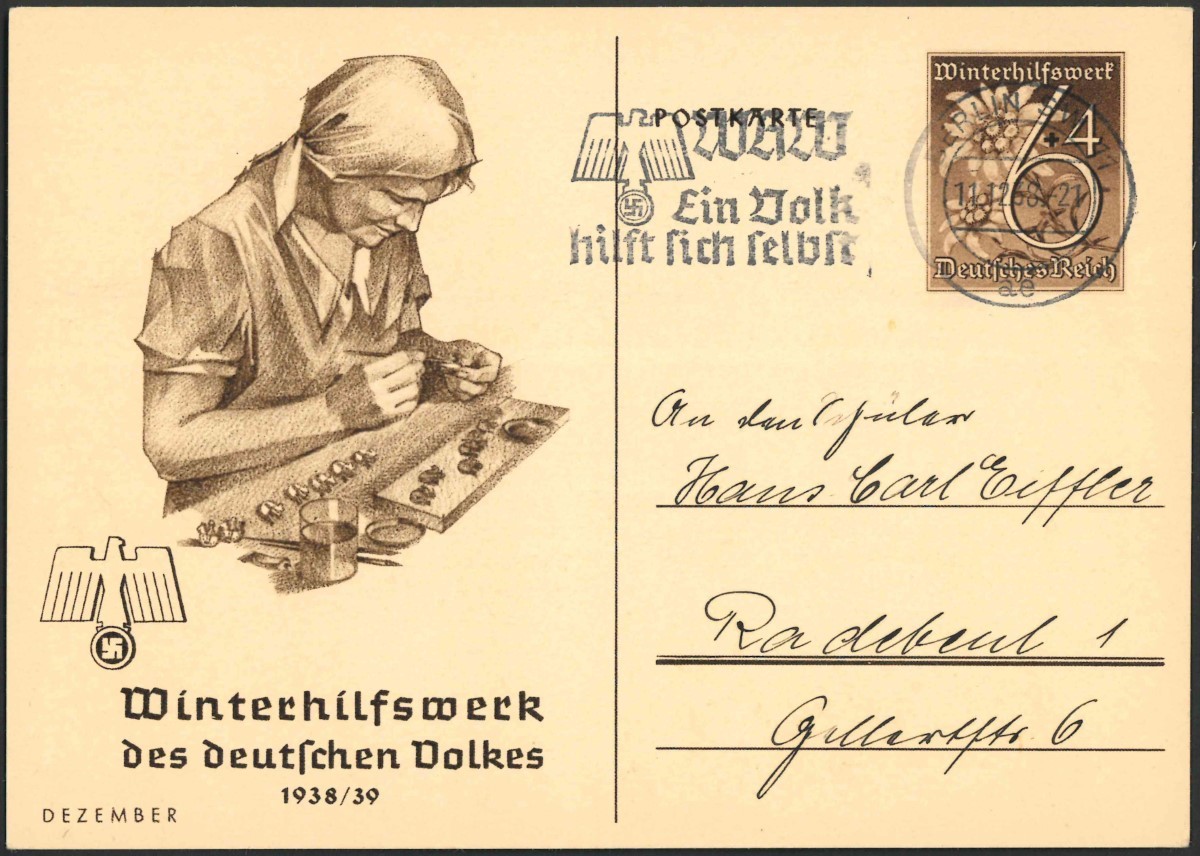 Winterhilfswerk
des deutschen Volkes
1938/39
DEZEMBER
POSTKARTE
WHW
Ein Volk
hilft sich selbst
Winterhilfswerk
6+4
Deutsches Reich
BERLIN SW 77
11.12.38.-21
ae
An den Schüler
Hans Carl Eiffler
Radebeul 1
Gellertstr. 6